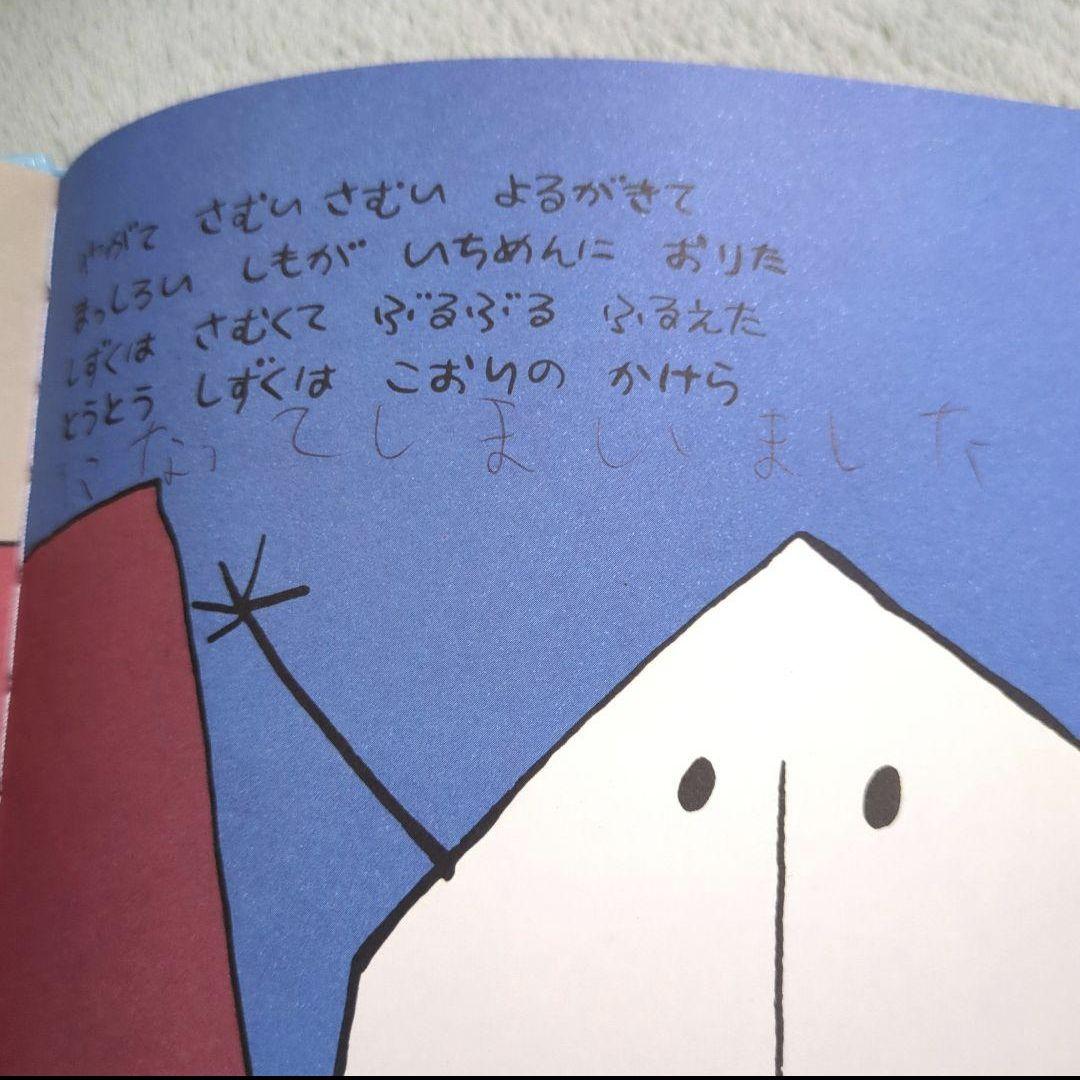 やがて さむい さむい よるがきて
まっしろい しもが いちめんに おりた
しずくは さむくて ぶるぶる ふるえた
とうとう しずくは こおりの かけら
になってしまいました